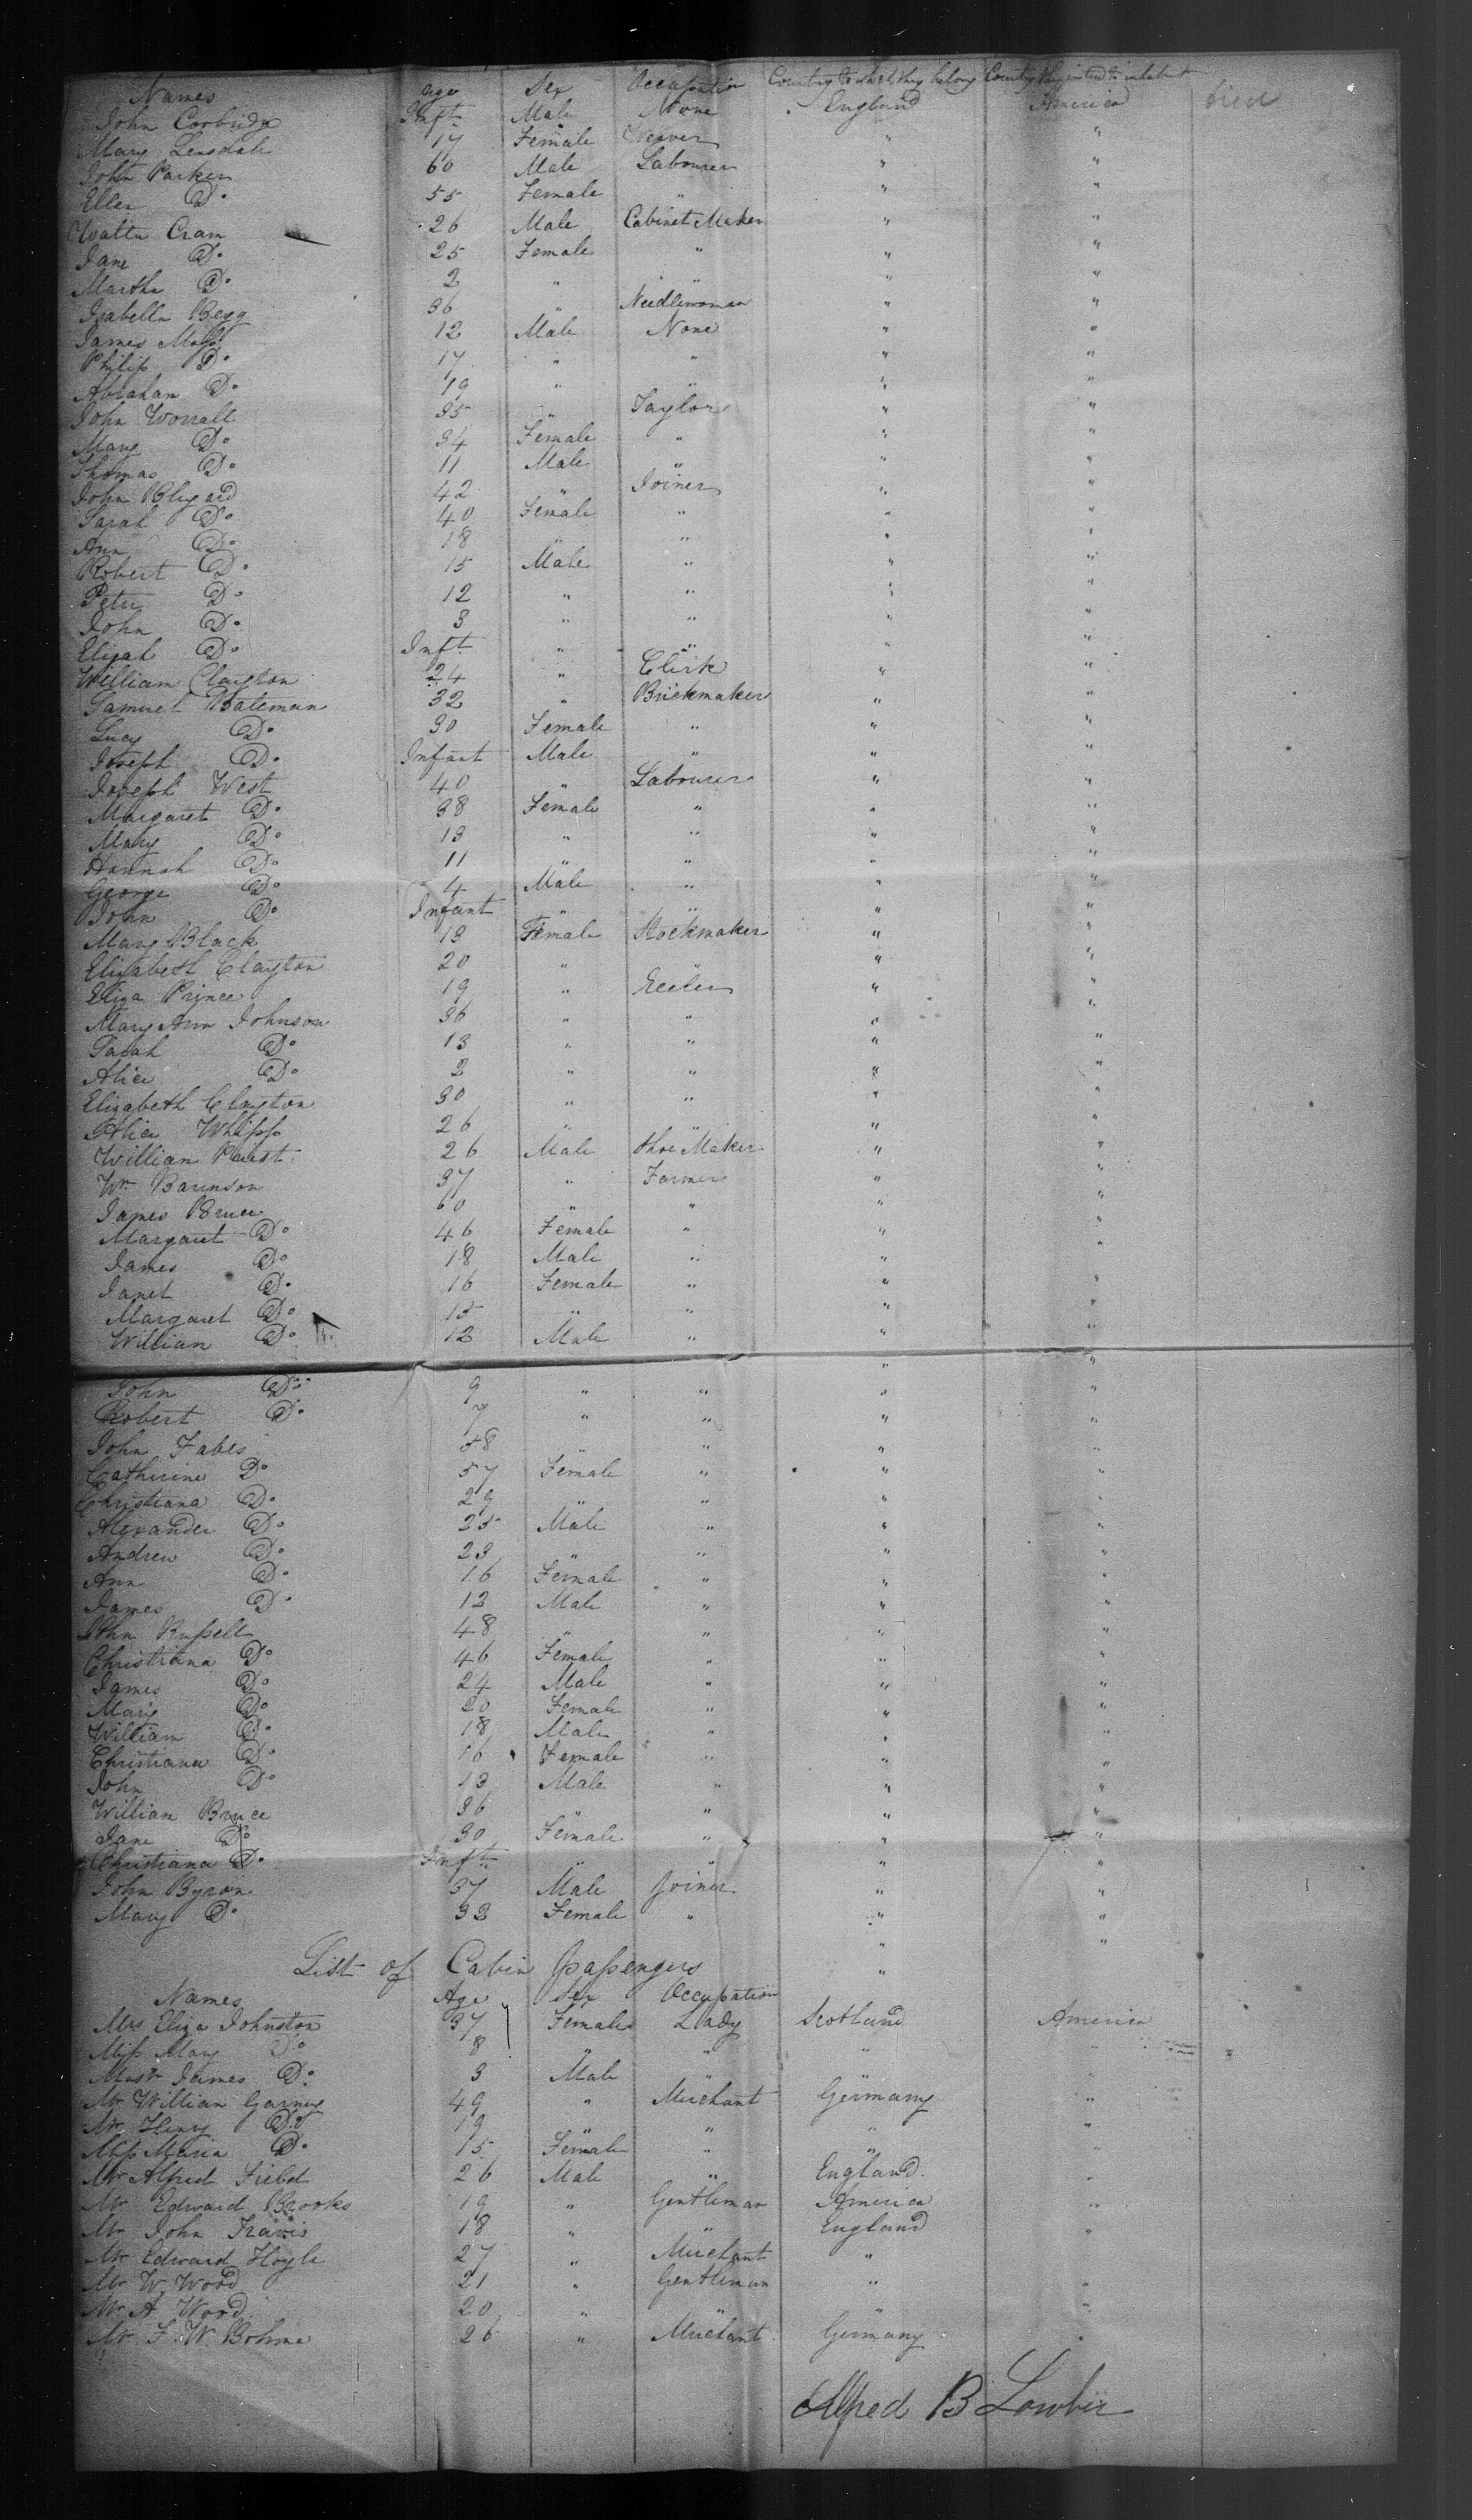 Names Age Sex Occupation Country to which they belong Country they intend to inhabit
John Corbridge Inft Male None England America Died
Mary Lonsdale 17 Female Weaver " "
John Parker 60 Male Labourer " "
Ellen Do 55 Female " " "
Walter Cram 26 Male Cabinet Maker " "
Jane Do 25 Female " " "
Martha Do 2 " " " "
Isabella Begg 36 " Needlewoman " "
James 12 Male None " "
Philip Do 17 " " " "
Abraham Do 19 " " " "
John Worrall 35 " Taylor " "
Mary Do 34 Female " " "
Thomas Do 11 Male " " "
John Blizard 42 " Joiner " "
Sarah Do 40 Female " " "
Ann Do 18 " " " "
Robert Do 15 Male " " "
Peter Do 12 " " " "
John Do 3 " " " "
Elijah Do Inft " " " "
William Clayton 24 " Clerk " "
Samuel Bateman 32 " Brickmaker " "
Lucy Do 30 Female " " "
Joseph Do Infant Male " " "
Joseph West 40 " Labourer " "
Margaret Do 38 Female " " "
Mary Do 13 " " " "
Hannah Do 11 " " " "
George Do 4 Male " " "
John Do Infant " " " "
Mary Black 19 Female Stockmaker " "
Elizabeth Clayton 20 " " " "
Eliza Prince 19 " Reeler " "
Mary Ann Johnson 36 " " " "
Sarah Do 13 " " " "
Alice Do 2 " " " "
Elizabeth Clayton 30 " " " "
Alice Whipp 26 " " " "
William 26 Male Shoe Maker " "
Wm Barinson 37 " Farmer " "
James Bruce 60 " " " "
Margaret Do 46 Female " " "
James Do 18 Male " " "
Janet Do 16 Female " " "
Margaret Do 15 " " " "
William Do 12 Male " " "
John Do 9 " " " "
Robert Do 7 " " " "
John Fabes 58 " " " "
Catherine Do 57 Female " " "
Christiana Do 29 " " " "
Alexander Do 25 Male " " "
Andrew Do 23 " " " "
Ann Do 16 Female " " "
James Do 12 Male " " "
John Russell 48 " " " "
Christiana Do 46 Female " " "
James Do 24 Male " " "
Mary Do 20 Female " " "
William Do 18 Male " " "
Christiana Do 16 Female " " "
John Do 13 Male " " "
William Bruce 36 " " " "
Jane Do 30 Female " " "
Christiana Do Inft " " " "
John Byron 37 Male Joiner " "
Mary Do 32 Female " " "
List of Cabin passengers
Names Age Sex Occupation
Mrs Eliza Johnston 37 Females Lady Scotland America
Miss Mary Do 8 " " " "
Mastr James Do 3 Male " " "
Mr William Garney 49 " Merchant Germany "
Mr Henry Do 19 " " " "
Miss Maria Do 15 Female " " "
Mr Alfred Field 26 Male " England "
Mr Edward Brooks 19 " Gentleman America "
Mr John Travis 18 " " England "
Mr Edward Hoyle 27 " Merchant "
Mr W. Wood 21 " Gentleman " "
Mr A Wood 20 " " " "
Mr F. W. Bohme 26 " Merchant Germany "
Alfred B Lowber